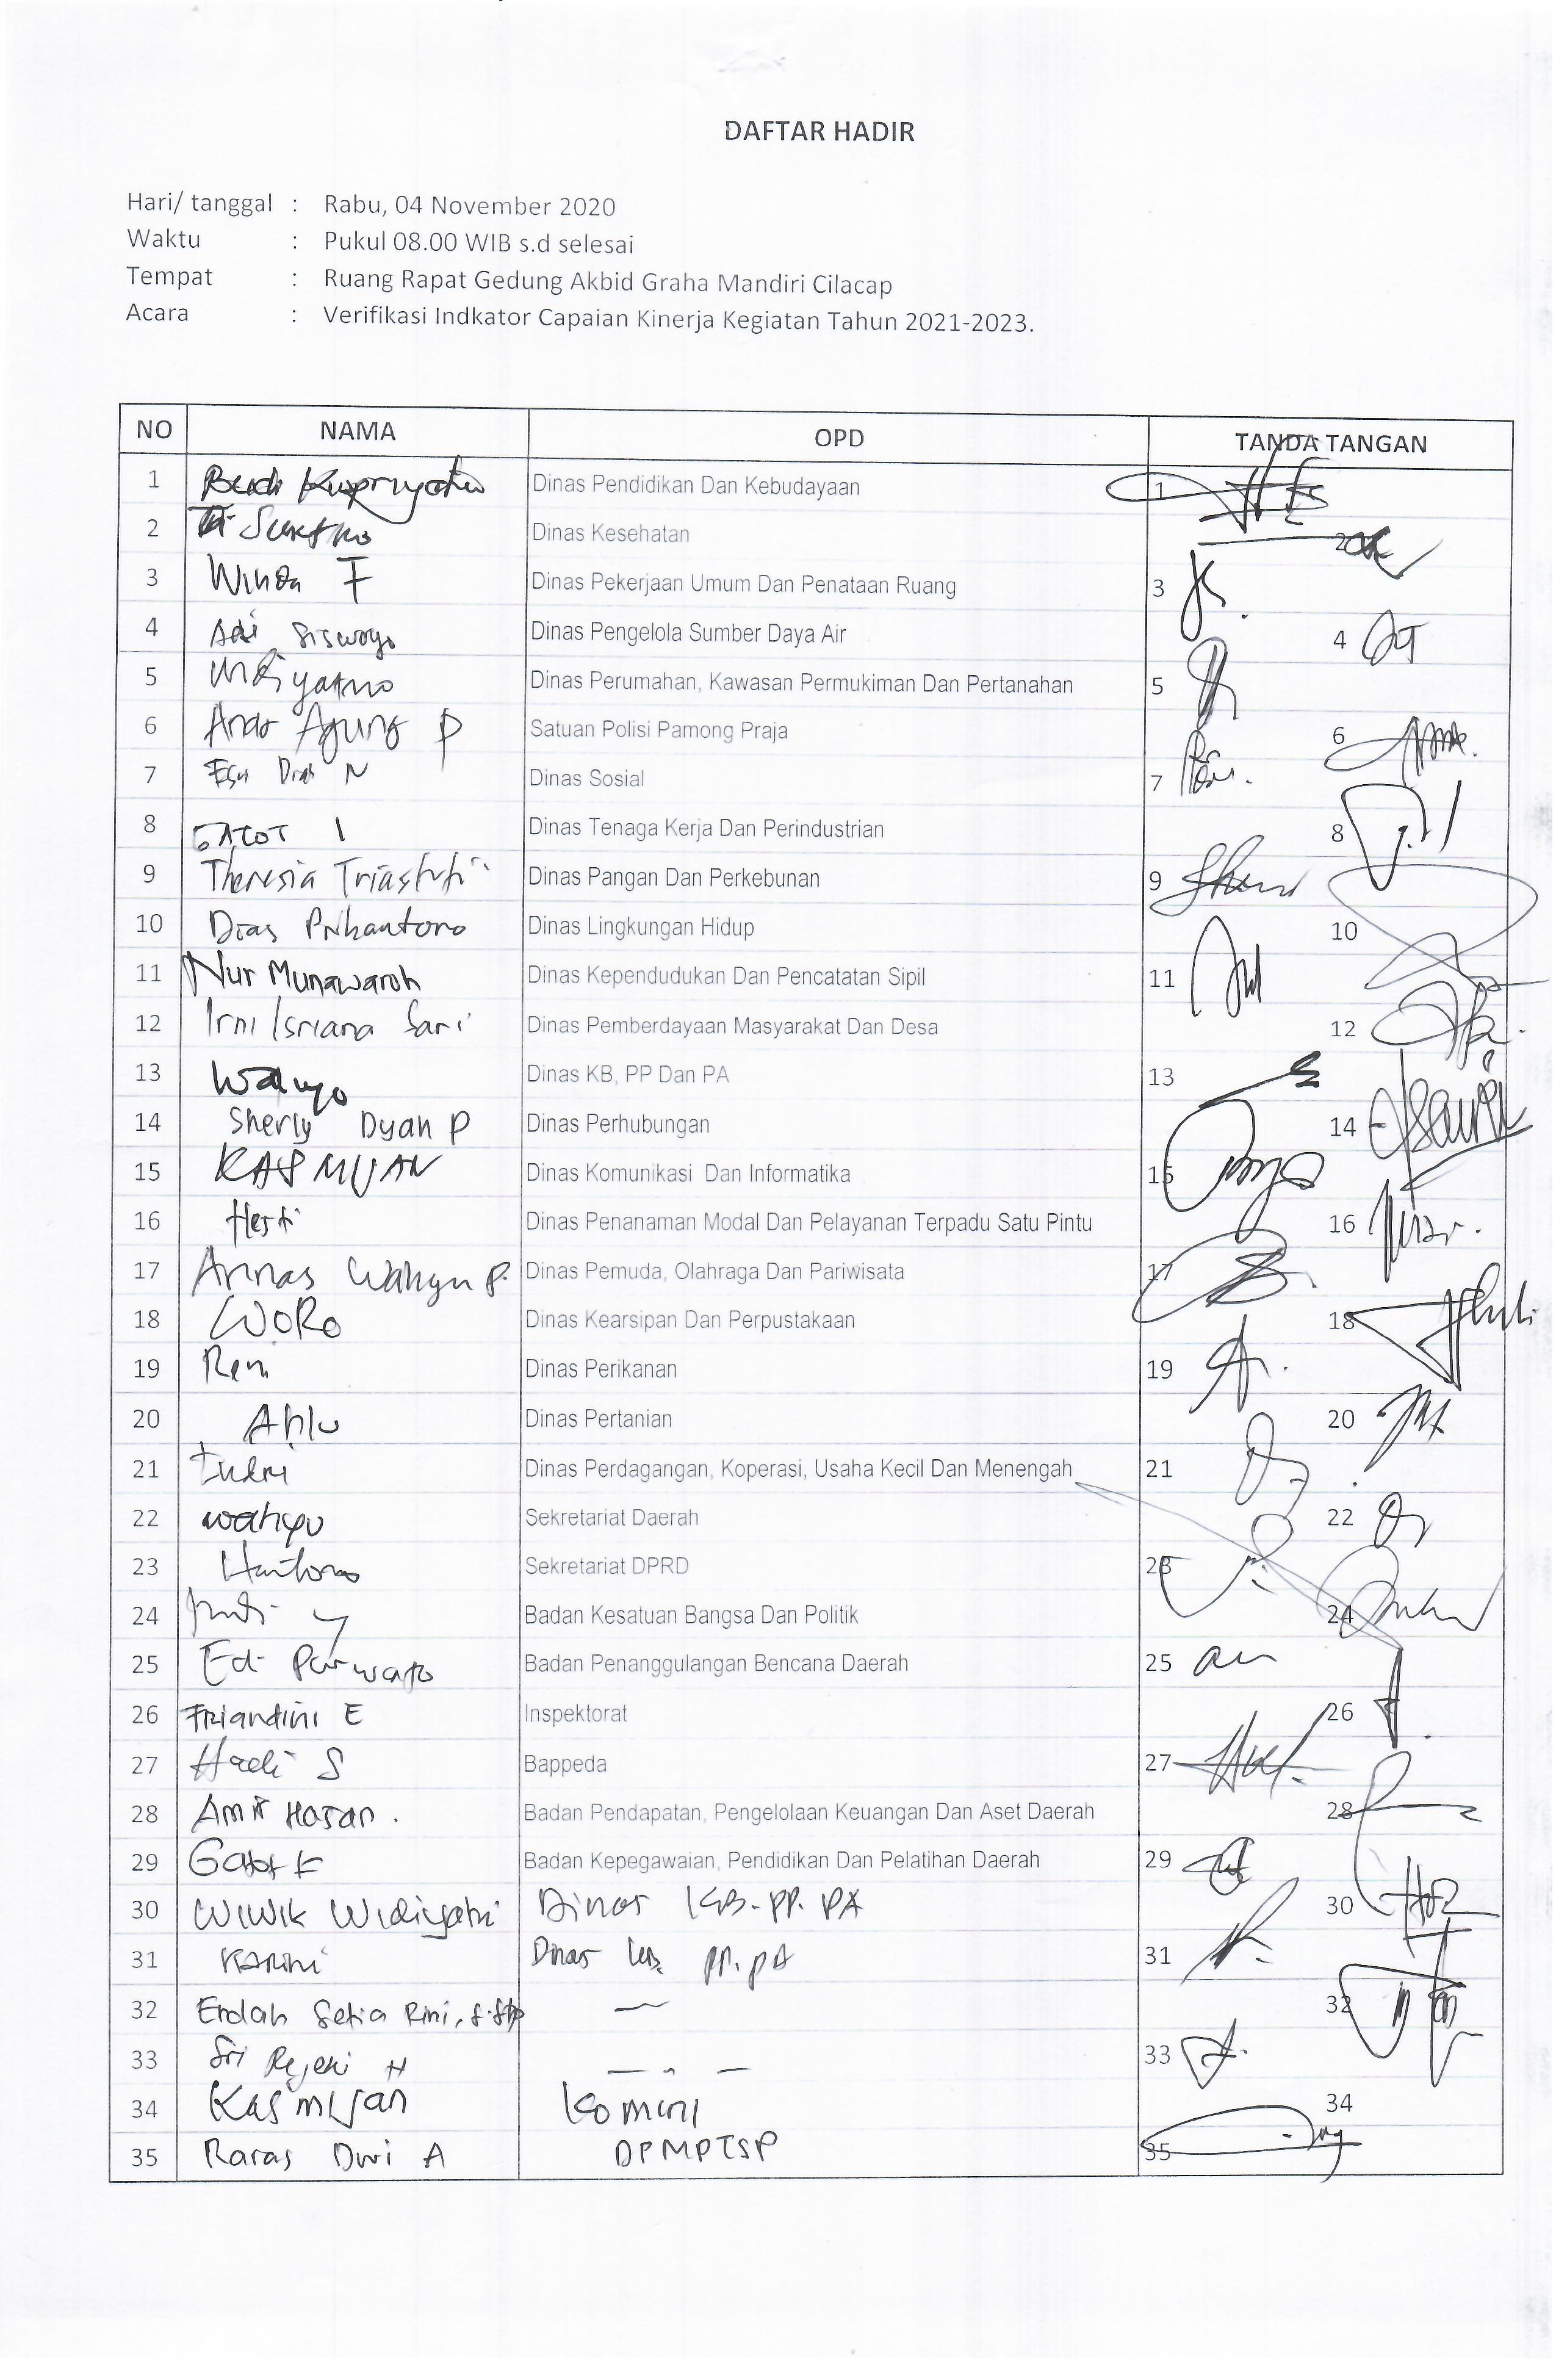 DAFTAR HADIR
Hari/ tanggal : Rabu, 04 November 2020
Waktu : Pukul 08.00 WIB s.d selesai
Tempat : Ruang Rapat Gedung Akbid Graha Mandiri Cilacap
Acara : Verifikasi Indkator Capaian Kinerja Kegiatan Tahun 2021-2023.
NO NAMA OPD TANDA TANGAN
1 Budi Dinas Pendidikan Dan Kebudayaan 1
2 Dinas Kesehatan 2
3 Winda F Dinas Pekerjaan Umum Dan Penataan Ruang 3
4 Adi Siswoyo Dinas Pengelola Sumber Daya Air 4
5 Dinas Perumahan, Kawasan Permukiman Dan Pertanahan 5
6 Agung P Satuan Polisi Pamong Praja 6
7 Dinas Sosial 7
8 GATOT Dinas Tenaga Kerja Dan Perindustrian 8
9 Theresia Triastuti Dinas Pangan Dan Perkebunan 9
10 Dias Prihantoro Dinas Lingkungan Hidup 10
11 Nur Munawaroh Dinas Kependudukan Dan Pencatatan Sipil 11
12 Irni Isriana Sari Dinas Pemberdayaan Masyarakat Dan Desa 12
13 Dinas KB, PP Dan PA 13
14 Sherly Dyah P Dinas Perhubungan 14
15 KASMIJAN Dinas Komunikasi Dan Informatika 15
16 Hesti Dinas Penanaman Modal Dan Pelayanan Terpadu Satu Pintu 16
17 Annas Wahyu P. Dinas Pemuda, Olahraga Dan Pariwisata 17
18 WORO Dinas Kearsipan Dan Perpustakaan 18
19 Reni Dinas Perikanan 19
20 Dinas Pertanian 20
21 Indri Dinas Perdagangan, Koperasi, Usaha Kecil Dan Menengah 21
22 Wahyu Sekretariat Daerah 22
23 Hantoro Sekretariat DPRD 23
24 Badan Kesatuan Bangsa Dan Politik 24
25 Edi Purwanto Badan Penanggulangan Bencana Daerah 25
26 Friandini E Inspektorat 26
27 Hadi S Bappeda 27
28 Amir Hasan. Badan Pendapatan, Pengelolaan Keuangan Dan Aset Daerah 28
29 Gatot Badan Kepegawaian, Pendidikan Dan Pelatihan Daerah 29
30 Wiwik Widiyatni Dinas KB-PP. PA 30
31 Karini Dinas KB. PP. PA 31
32 Endah Setia Rini, S.STP — 32
33 Sri Rejeki H — " — 33
34 Kasmijan Kominf 34
35 Raras Dwi A DPMPTSP 35